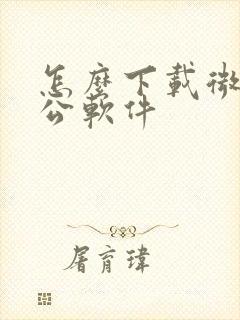 怎麼下載微
公軟件
屠育瑋